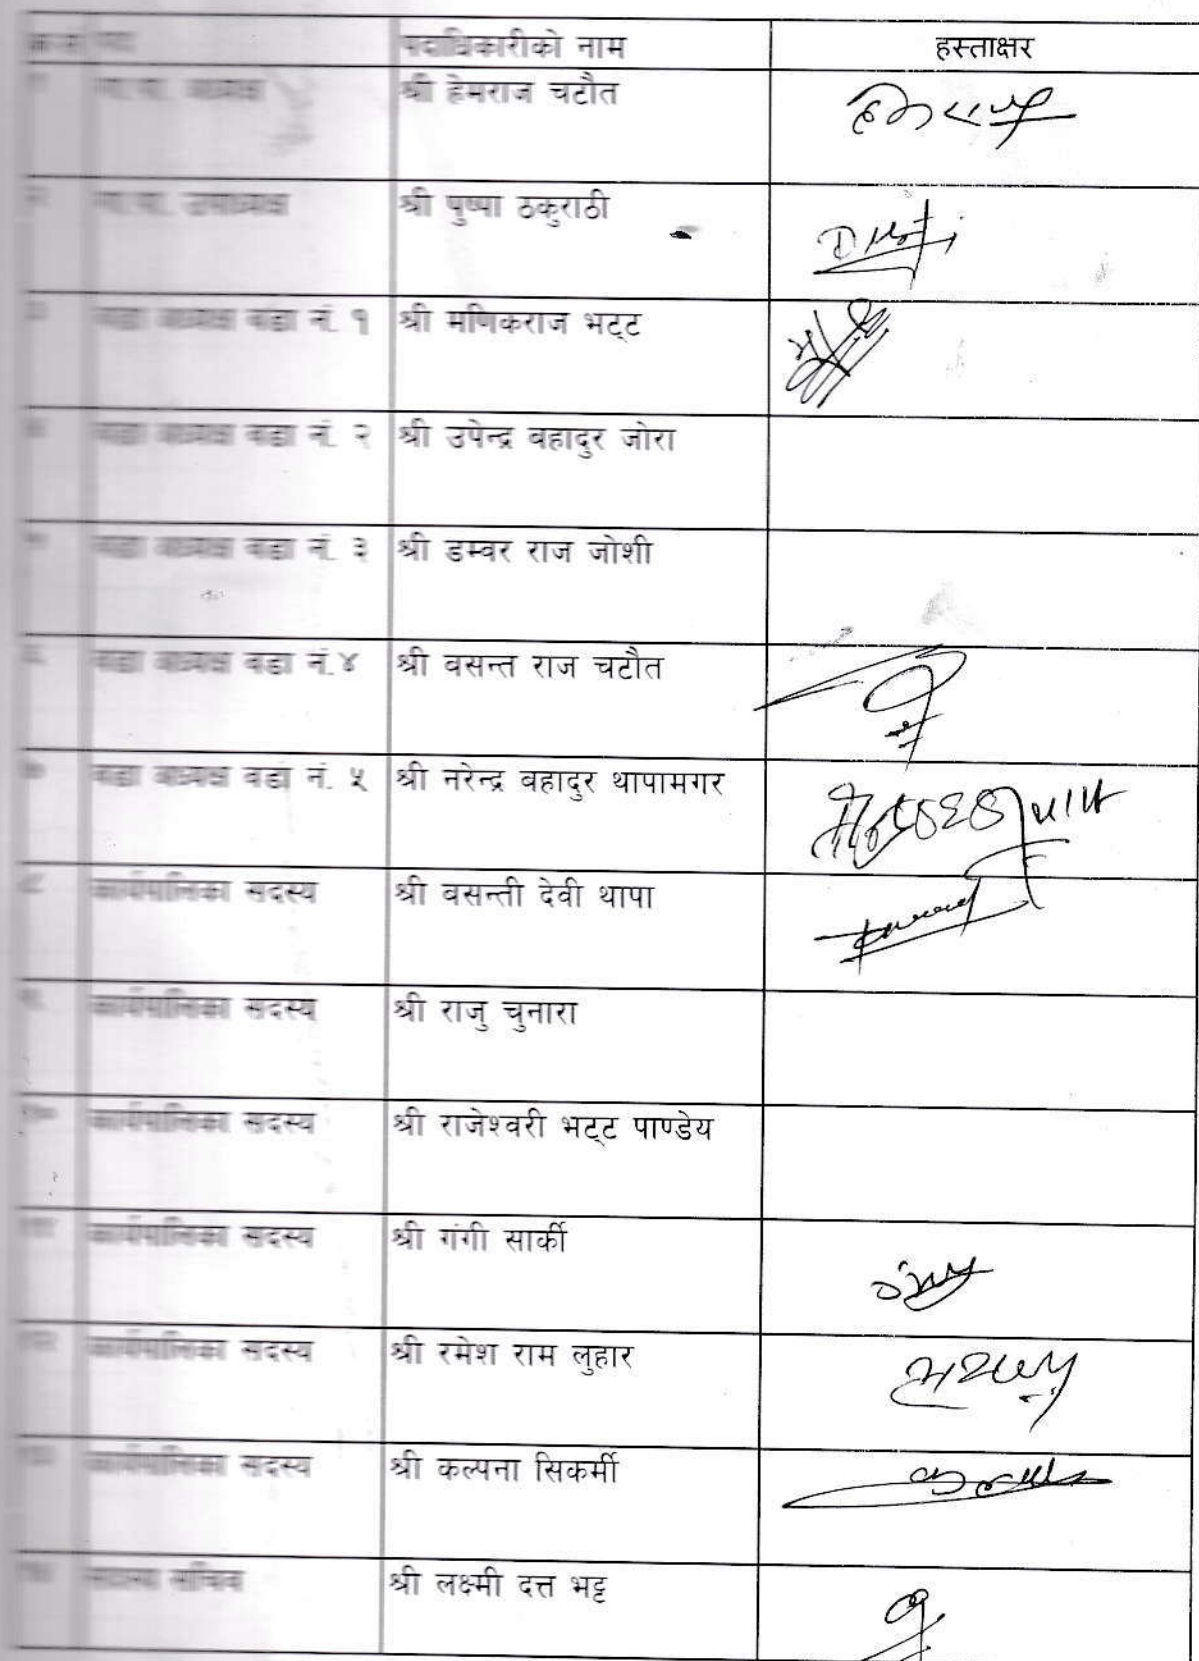 क्र.सं. पद पदाधिकारीको नाम हस्ताक्षर
१ गा.पा. अध्यक्ष श्री हेमराज चटौत
२ गा.पा. उपाध्यक्ष श्री पुष्पा ठकुराठी
३ वडा अध्यक्ष वडा नं. १ श्री मणिकराज भट्ट
४ वडा अध्यक्ष वडा नं. २ श्री उपेन्द्र वहादुर जोरा
५ वडा अध्यक्ष वडा नं. ३ श्री डम्वर राज जोशी
६ वडा अध्यक्ष वडा नं.४ श्री वसन्त राज चटौत
७ वडा अध्यक्ष वडा नं. ५ श्री नरेन्द्र वहादुर थापामगर
८ कार्यपालिका सदस्य श्री वसन्ती देवी थापा
९ कार्यपालिका सदस्य श्री राजु चुनारा
१० कार्यपालिका सदस्य श्री राजेश्वरी भट्ट पाण्डेय
११ कार्यपालिका सदस्य श्री गंगी सार्की
१२ कार्यपालिका सदस्य श्री रमेश राम लुहार
१३ कार्यपालिका सदस्य श्री कल्पना सिकर्मी
१४ सदस्य सचिव श्री लक्ष्मी दत्त भट्ट